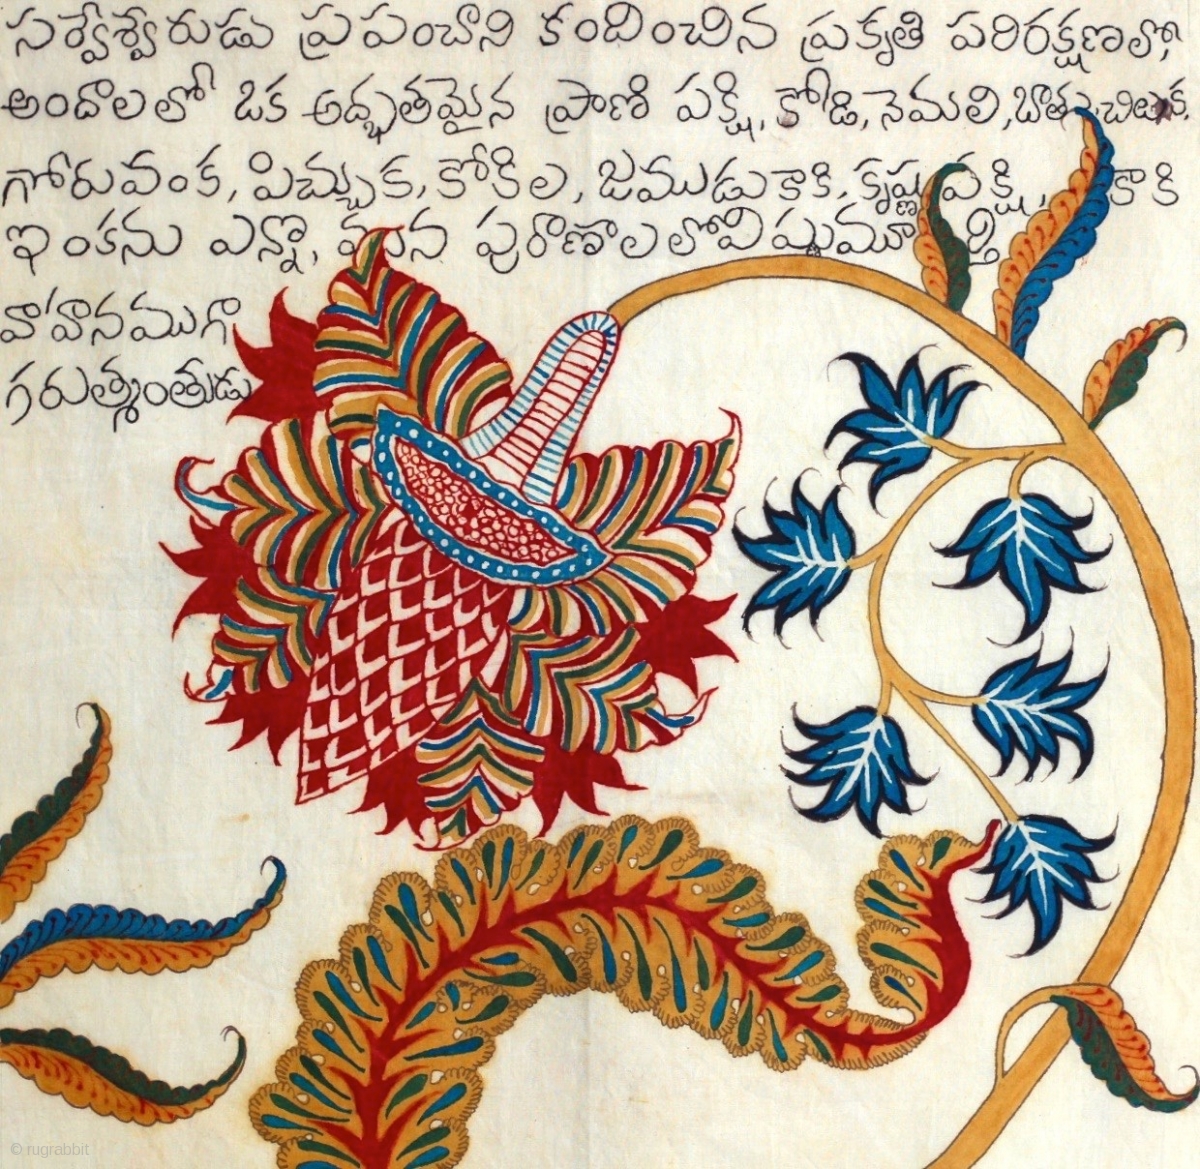 సర్వేశ్వేరుడు ప్రపంచాని కందించిన ప్రకృతి పరిరక్షణలో,
అందాలలో ఒక అద్భుతమైన ప్రాణి పక్షి, కోడి, నెమలి, బాతు, చిలుక,
గోరువంక, పిచ్చుక, కోకిల, జముడుకాకి, కృష్ణపక్షి, కాకి
ఇంకను ఎన్నొ, మన పురాణాలలో విష్ణుమూర్తి
వాహనముగా
గరుత్మంతుడు
© rugrabbit